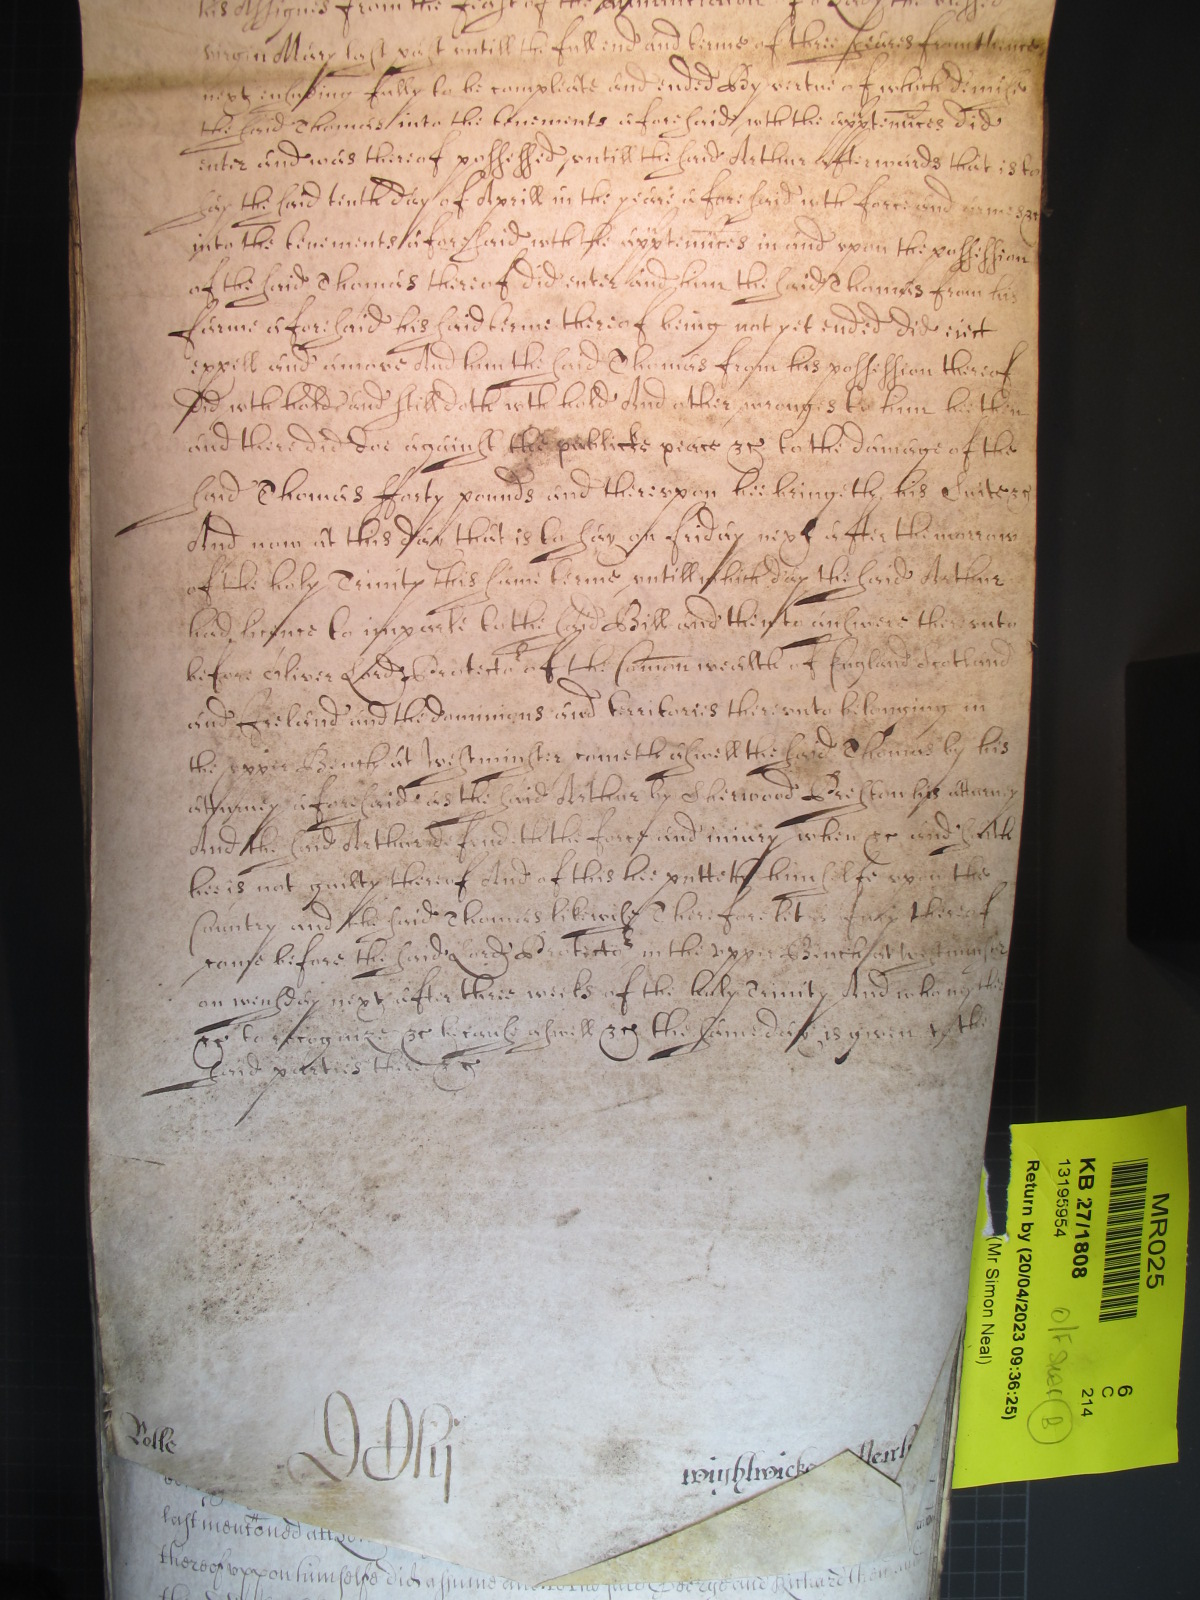 his Assignes from the feast of the Annunciation of o Lady the blessed
virgin Mary last past untill the full end and terme of three yeares from thence
next ensueing fully to be compleate and ended By vertue of which demise
the said Thomas into the tenements aforesaid wth the apptennces did
enter and was thereof possessed untill the said Arthur afterwards that is to
say the said tenth day of Aprill in the yeare aforesaid wth force and armes &c
into the tenements aforesaid wth the apptennces in and upon the possession
of the said Thomas thereof did enter and him the said Thomas from his
farme aforesaid his said terme thereof being not yet ended did eject
expell and amove And him the said Thomas from his possession thereof
did wth hold and still doth wth hold And other wronges to him hee then
and there did doe against the publicke peace &c to the damage of the
said Thomas fforty pounds and thereupon hee bringeth his Suite &c
And now at this day that is to say on friday next after the morrow
of the holy Trinity this same terme untill which day the said Arthur
had licence to imparle to the said Bill and then to answere thereunto
before Oliver Lord Protector of the Comon wealth of England Scotland
and Ireland and the dominions and territories thereunto belonging in
the upper Bench at Westminster cometh aswell the said Thomas by his
attorney aforesaid as the said Arthur by Sherwood Preston his attorney
And the said Arthur defendeth the force and iniury when &c and saith
hee is not guilty thereof And of this hee putteth himselfe upon the
Country and the said Thomas likewise Therefore let a Jury thereof
come before the said Lord Protector in the upper Bench at Westminster
on wensday next after three weeks of the holy Trinity And who neither
&c to recognize &c because aswell &c the same day is given to the
said parties there &c
Rolle
wightwicke
last mentioned
thereof uppon himselfe did assume and to the said George and Richard then
MR025
KB 27/1808
13195954
6
C
214
O/F Size
B
Return by (20/04/2023 09:36:25)
(Mr Simon Neal)